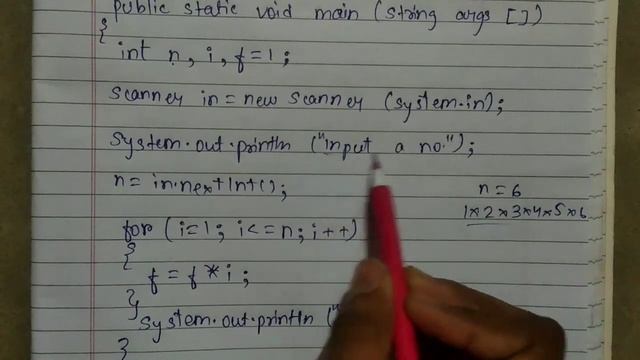 public static void main (string args [])
{
int n, i, f=1;
Scanner in = new Scanner (system.in);
system.out.println ("input a no.");
n = in.nextInt();
n = 6
1*2*3*4*5*6
for (i=1; i<=n; i++)
{
f = f * i;
}
system.out.println ("
}